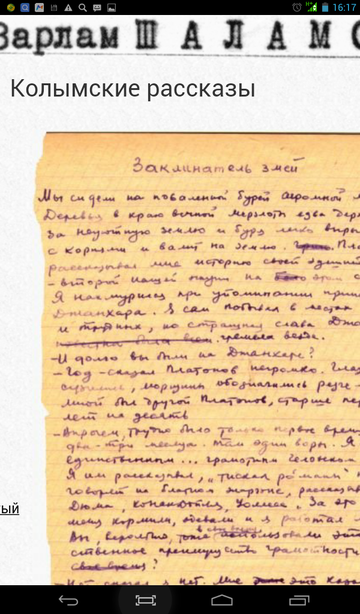 16:17
Варлам ШАЛАМО
Колымские рассказы
Заклинатель змей
Мы сидели на поваленной бурей огромной
Деревья в краю вечной мерзлоты едва держ
за неуютную землю и буря легко вырыв
с корнями и валит на землю. Пла
рассказывал мне историю своей здешней
- второй нашей жизни на этом
Я нахмурился при упоминании прии
Джанхара. Я сам побывал в местах
и трудных, но страшная слава Джа
гремела везде.
- И долго вы были на Джанхаре?
- Год - сказал Платонов негромко. Глаз
сузились, морщины обозначились резче
мной был другой Платонов, старше пер
лет на десять
- Впрочем, трудно было только первое время
два-три месяца. Там одни воры. Я
единственным... грамотным человеком
Я им рассказывал, "тискал романы"
говорят на блатном жаргоне, рассказы
Дюма, Конан-Дойля, Уоллеса. За это
меня кормили, одевали и я работал
Вы, вероятно, тоже использовали это
в свое время
ственное преимущество грамотности
свое время?
- Нет сказал я нет. Мне это каза
ый